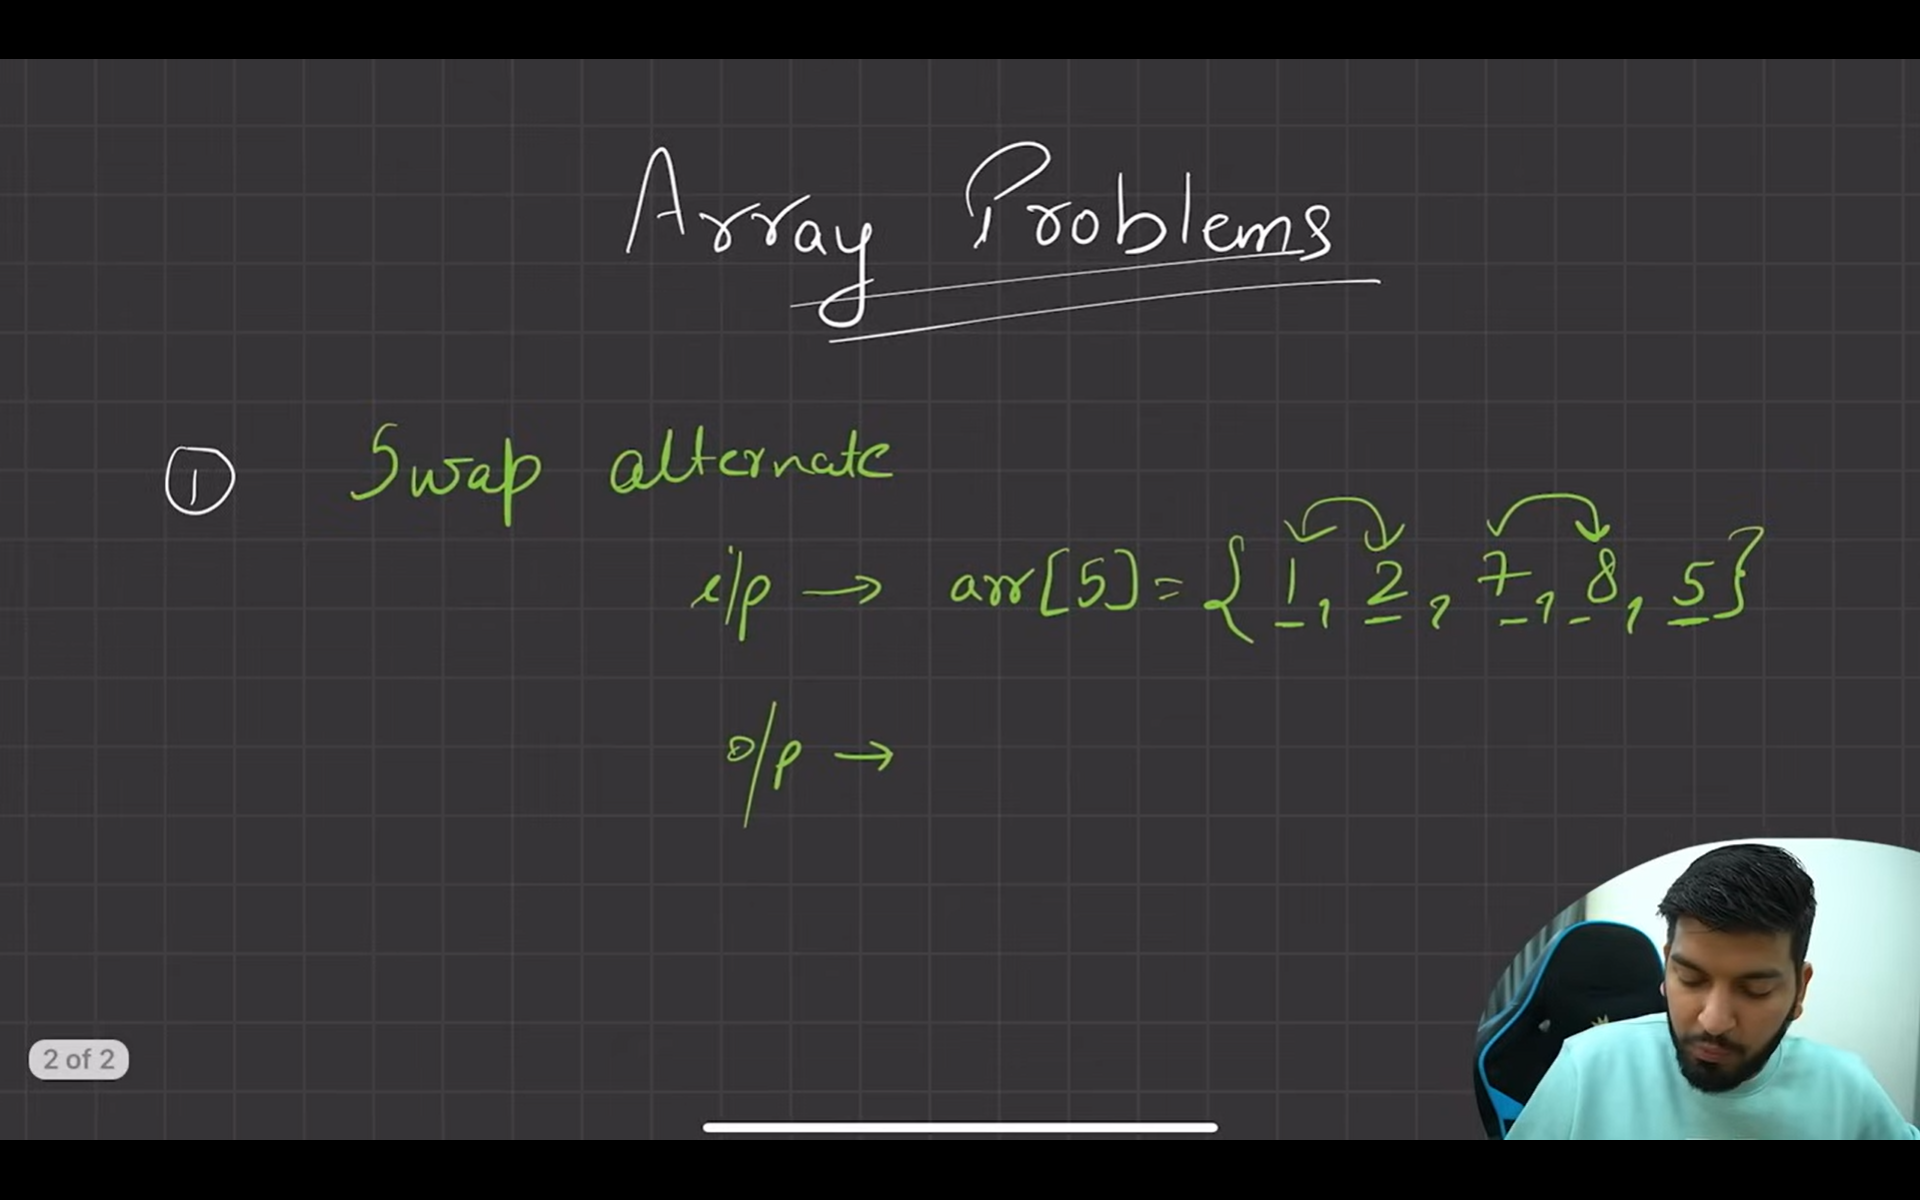 Array Problems
1 Swap alternate
i/p → arr[5] = {1, 2, 7, 8, 5}
o/p →
2 of 2